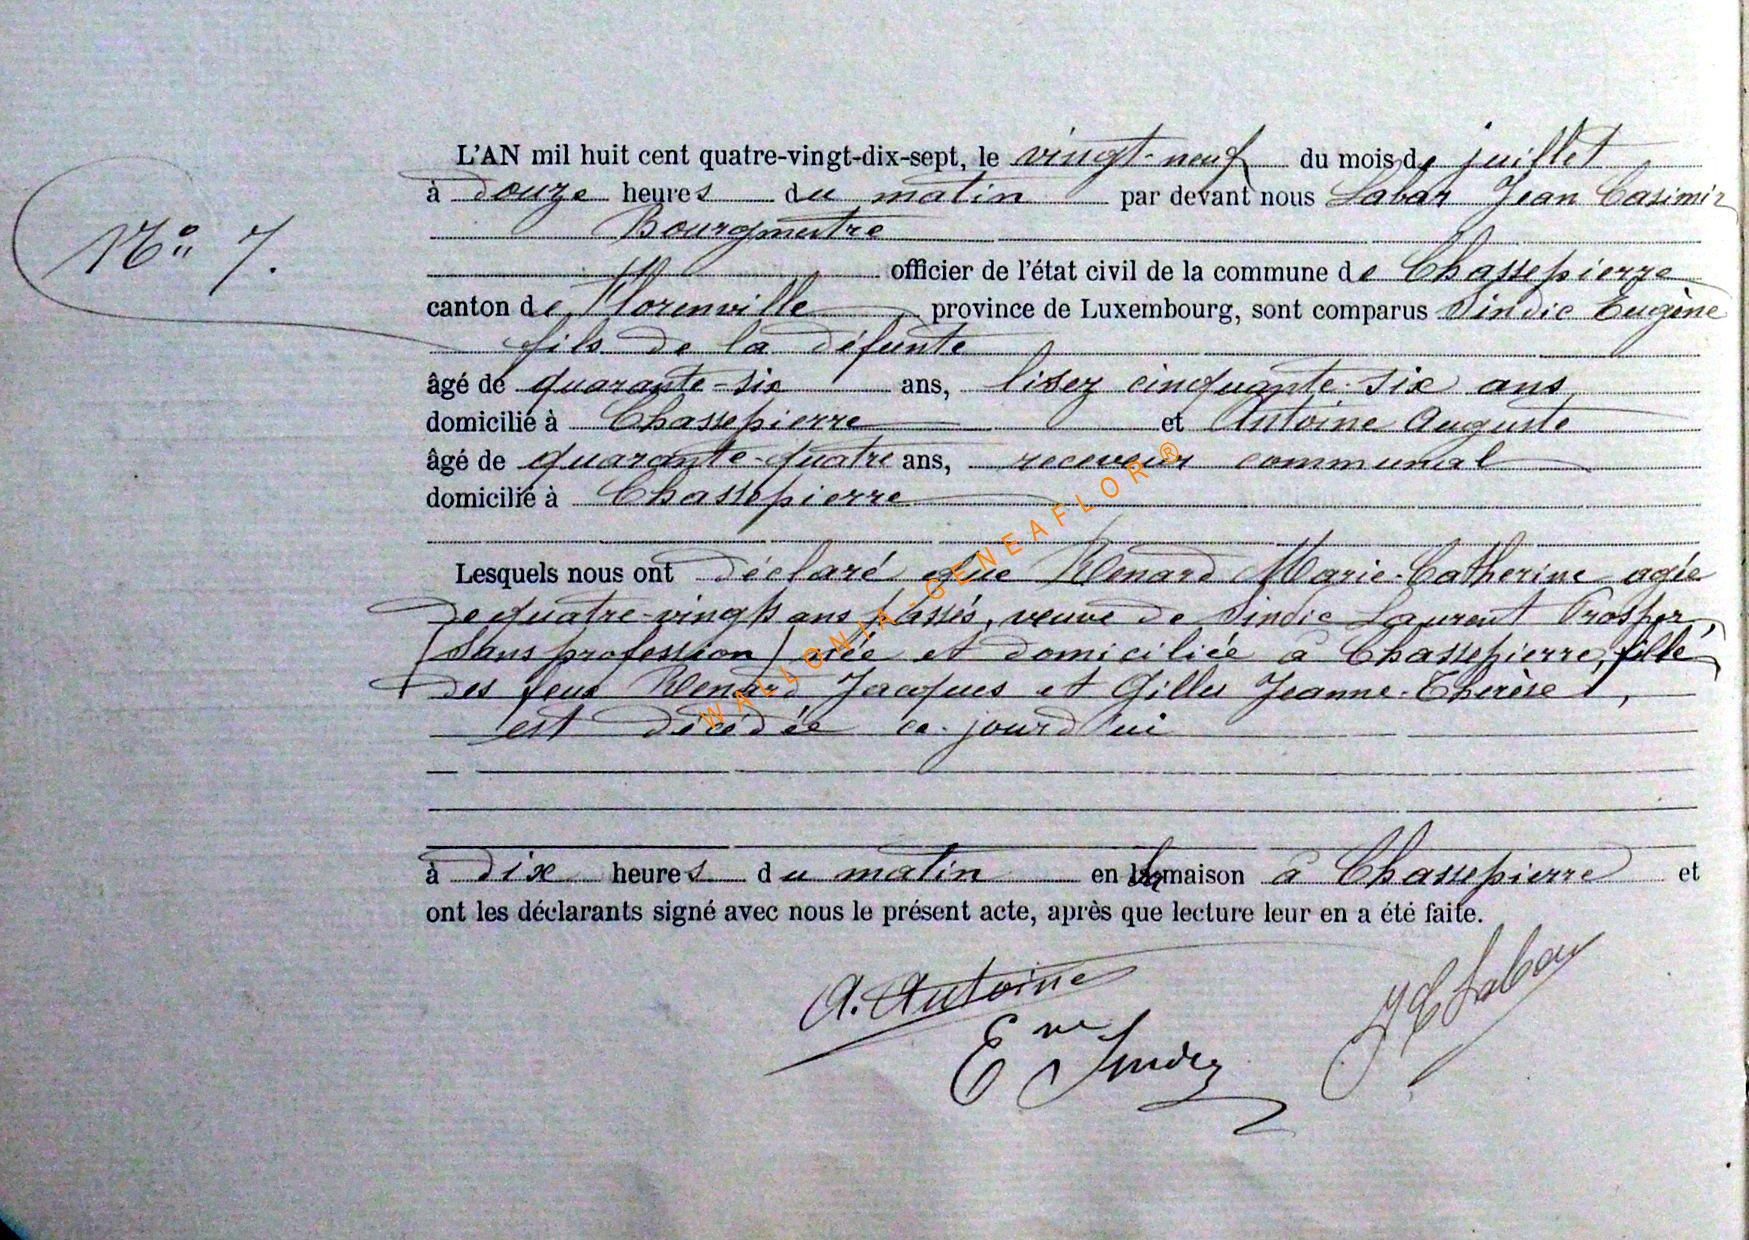 L'AN mil huit cent quatre-vingt-dix-sept, le vingt-neuf du mois de juillet
à douze heures du matin par devant nous Labar Jean Casimir
Bourgmestre
N° 7.
officier de l'état civil de la commune de Chassepierre
canton de Florenville province de Luxembourg, sont comparus Sindic Eugène
fils de la défunte
âgé de quarante-six ans, lisez cinquante-six ans
domicilié à Chassepierre et Antoine Auguste
âgé de quarante-quatre ans, receveur communal
domicilié à Chassepierre
Lesquels nous ont déclaré que Renard Marie-Catherine agée
de quatre-vingts ans passés, veuve de Sindic Laurent Prosper,
(Sans profession) née et domiciliée à Chassepierre, fille
des feus Renard Jacques et Gilles Jeanne-Therèse,
est décédée ce-jourd'hui
à dix heures du matin en sa maison à Chassepierre et
ont les déclarants signé avec nous le présent acte, après que lecture leur en a été faite.
A. Antoine
J C Labar
E Sindic
WALLONIA-GENEAFLOR®